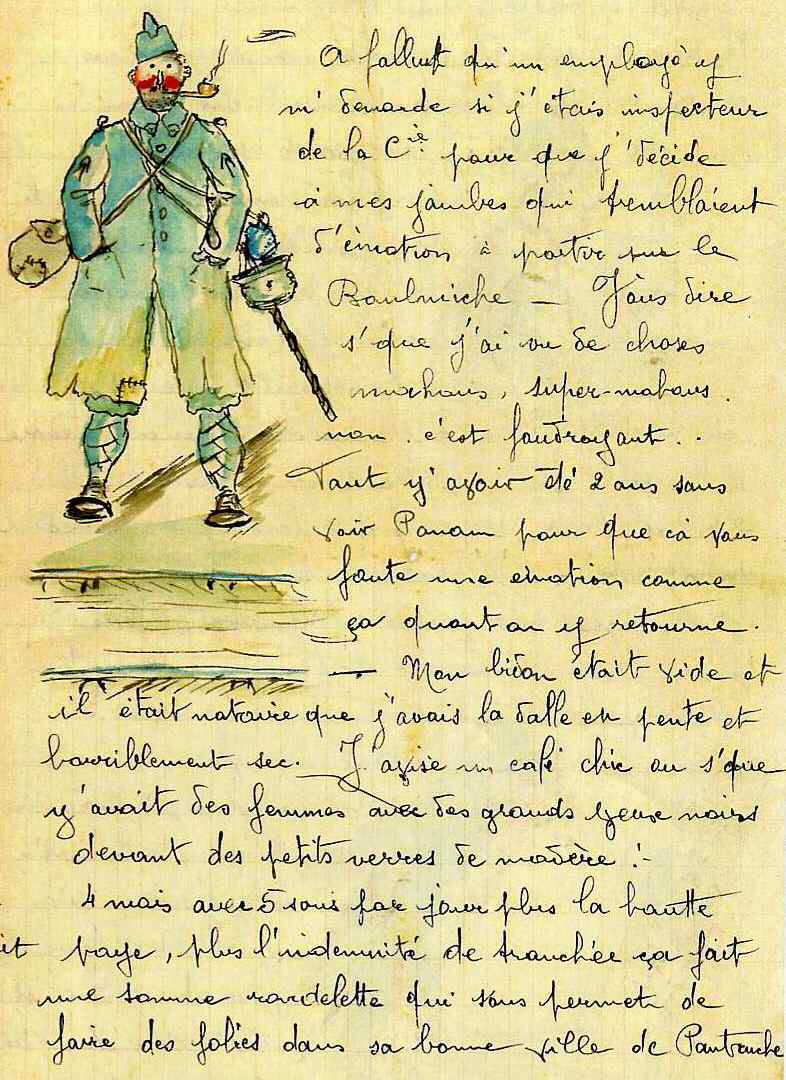 A fallut qu'un employé y
m'demande si j'étais inspecteur
de la Cie pour que j'décide
à mes jambes qui tremblaient
d'émotion à partir sur le
Boulmiche — J'vous dire
s'que j'ai vu de choses
mahous, super-mahous.
non. c'est foudroyant..
Faut y'avoir été 2 ans sans
voir Panam pour que ça vous
foute une émotion comme
ça quant on y retourne.
— Mon bidon était vide et
il était notoire que j'avais la dalle en pente et
horriblement sec. J'avise un café chic ou s'que
y'avait des femmes avec des grands yeux noirs
devant des petits verres de madère !-
4 mois avec 5 sous par jour plus la hautte
paye, plus l'indemnité de tranchée ça fait
une somme rondelette qui vous permet de
faire des folies dans sa bonne ville de Pantruche